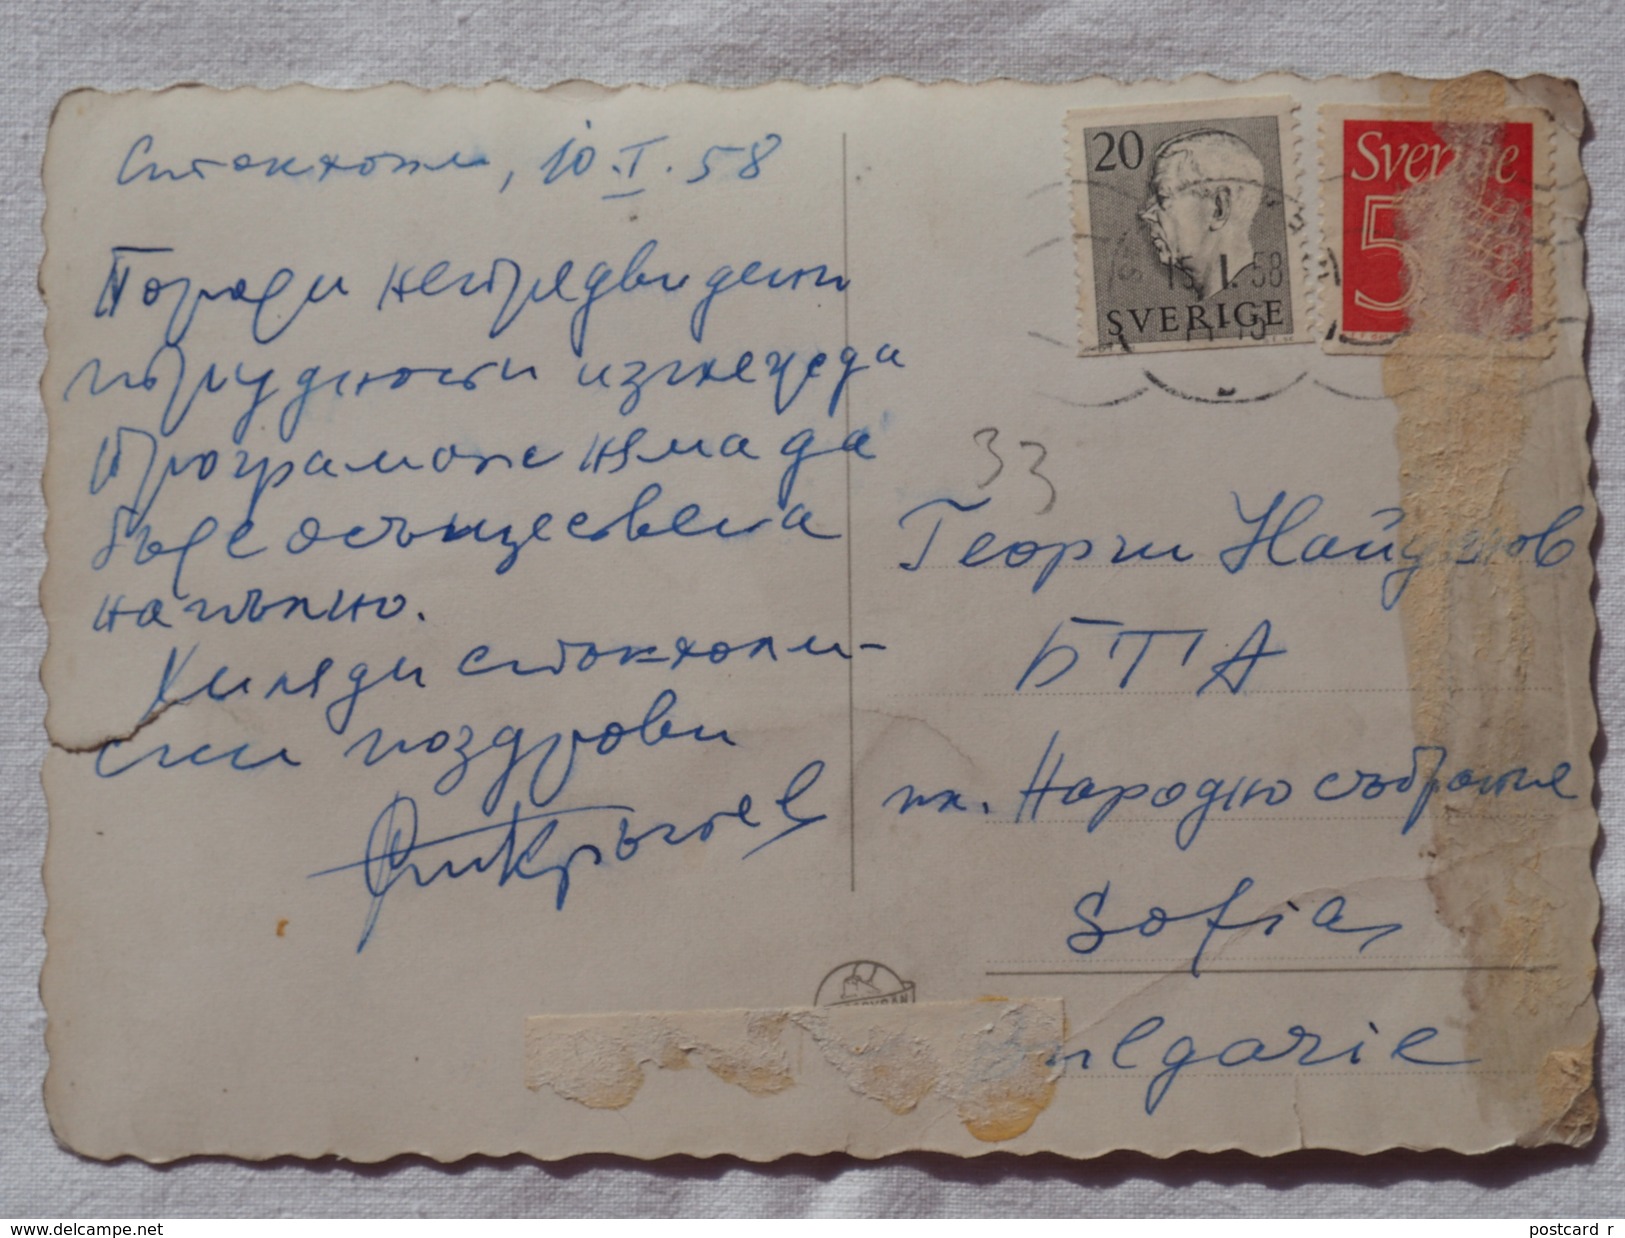 Стокхолм, 10.I.58
Поради непредвидени
трудности изглежда
програмата няма да
бъде осъществена
напълно.
Хиляди стокхолм-
ски поздрави
20
SVERIGE
15.1.58
Sverige
5
33
Георги Найденов
БТА
пл. Народно събрание
Sofia,
ulgarie
www.delcampe.net
postcard_r